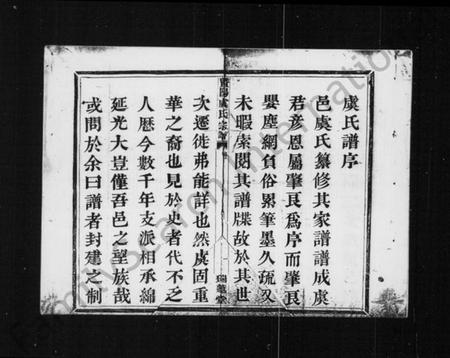 虞氏譜序
邑虞氏纂修其家譜譜成虞
君彥恩屬肇艮為序而肇艮
嬰塵網負俗累筆墨久疏又
未暇索閱其譜牒故於其世
虞氏宗譜
瑞華堂
次遷徙弗能詳也然虞固重
華之裔也見於史者代不乏
人歷今數千年支派相承綿
延光大豈僅吾邑之望族哉
或問於余曰譜者封建之制
FamilySearch International